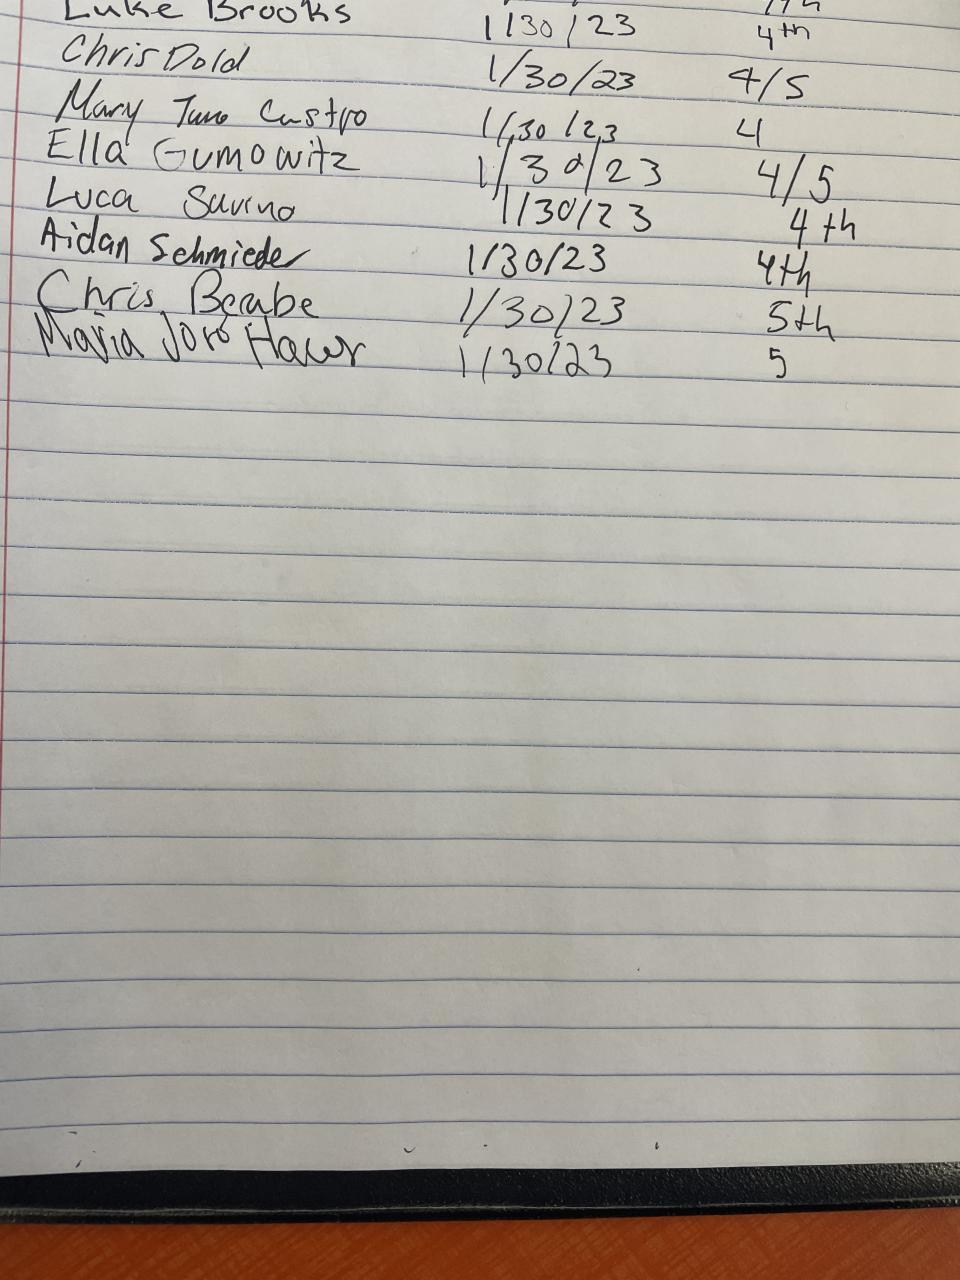 Luke Brooks 1/30/23 4th
Chris Dold 1/30/23 4/5
Mary Castro 1/30/23 4
Ella Gumowitz 1/30/23 4/5
Luca Savino 1/30/23 4th
Aidan Schmieder 1/30/23 4th
Chris Beabe 1/30/23 5th
Maria 1/30/23 5